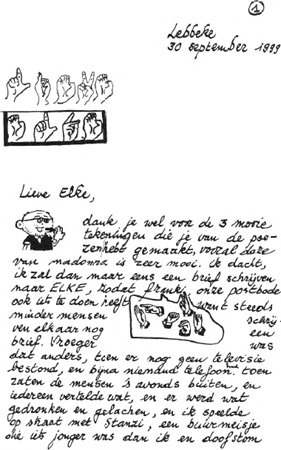 1
Lebbeke
30 september 1999
Lieve Elke,
dank je wel voor de 3 mooie
tekeningen die je van de poe-
zen hebt gemaakt, vooral deze
van madonna is zeer mooi. ik dacht,
ik zal dan maar eens een brief schrijven
naar ELKE, zodat frank, onze postbode
ook iets te doen heeft want steeds
minder mensen schrij-
ven elkaar nog een
brief. Vroeger was
dat anders, toen er nog geen televisie
bestond, en bijna niemand telefoon. toen
zaten de mensen 's avonds buiten, en
iedereen vertelde wat, en er werd wat
gedronken en gelachen, en ik speelde
op straat met Stanzi, een buurmeisje
die iets jonger was dan ik en doofstom